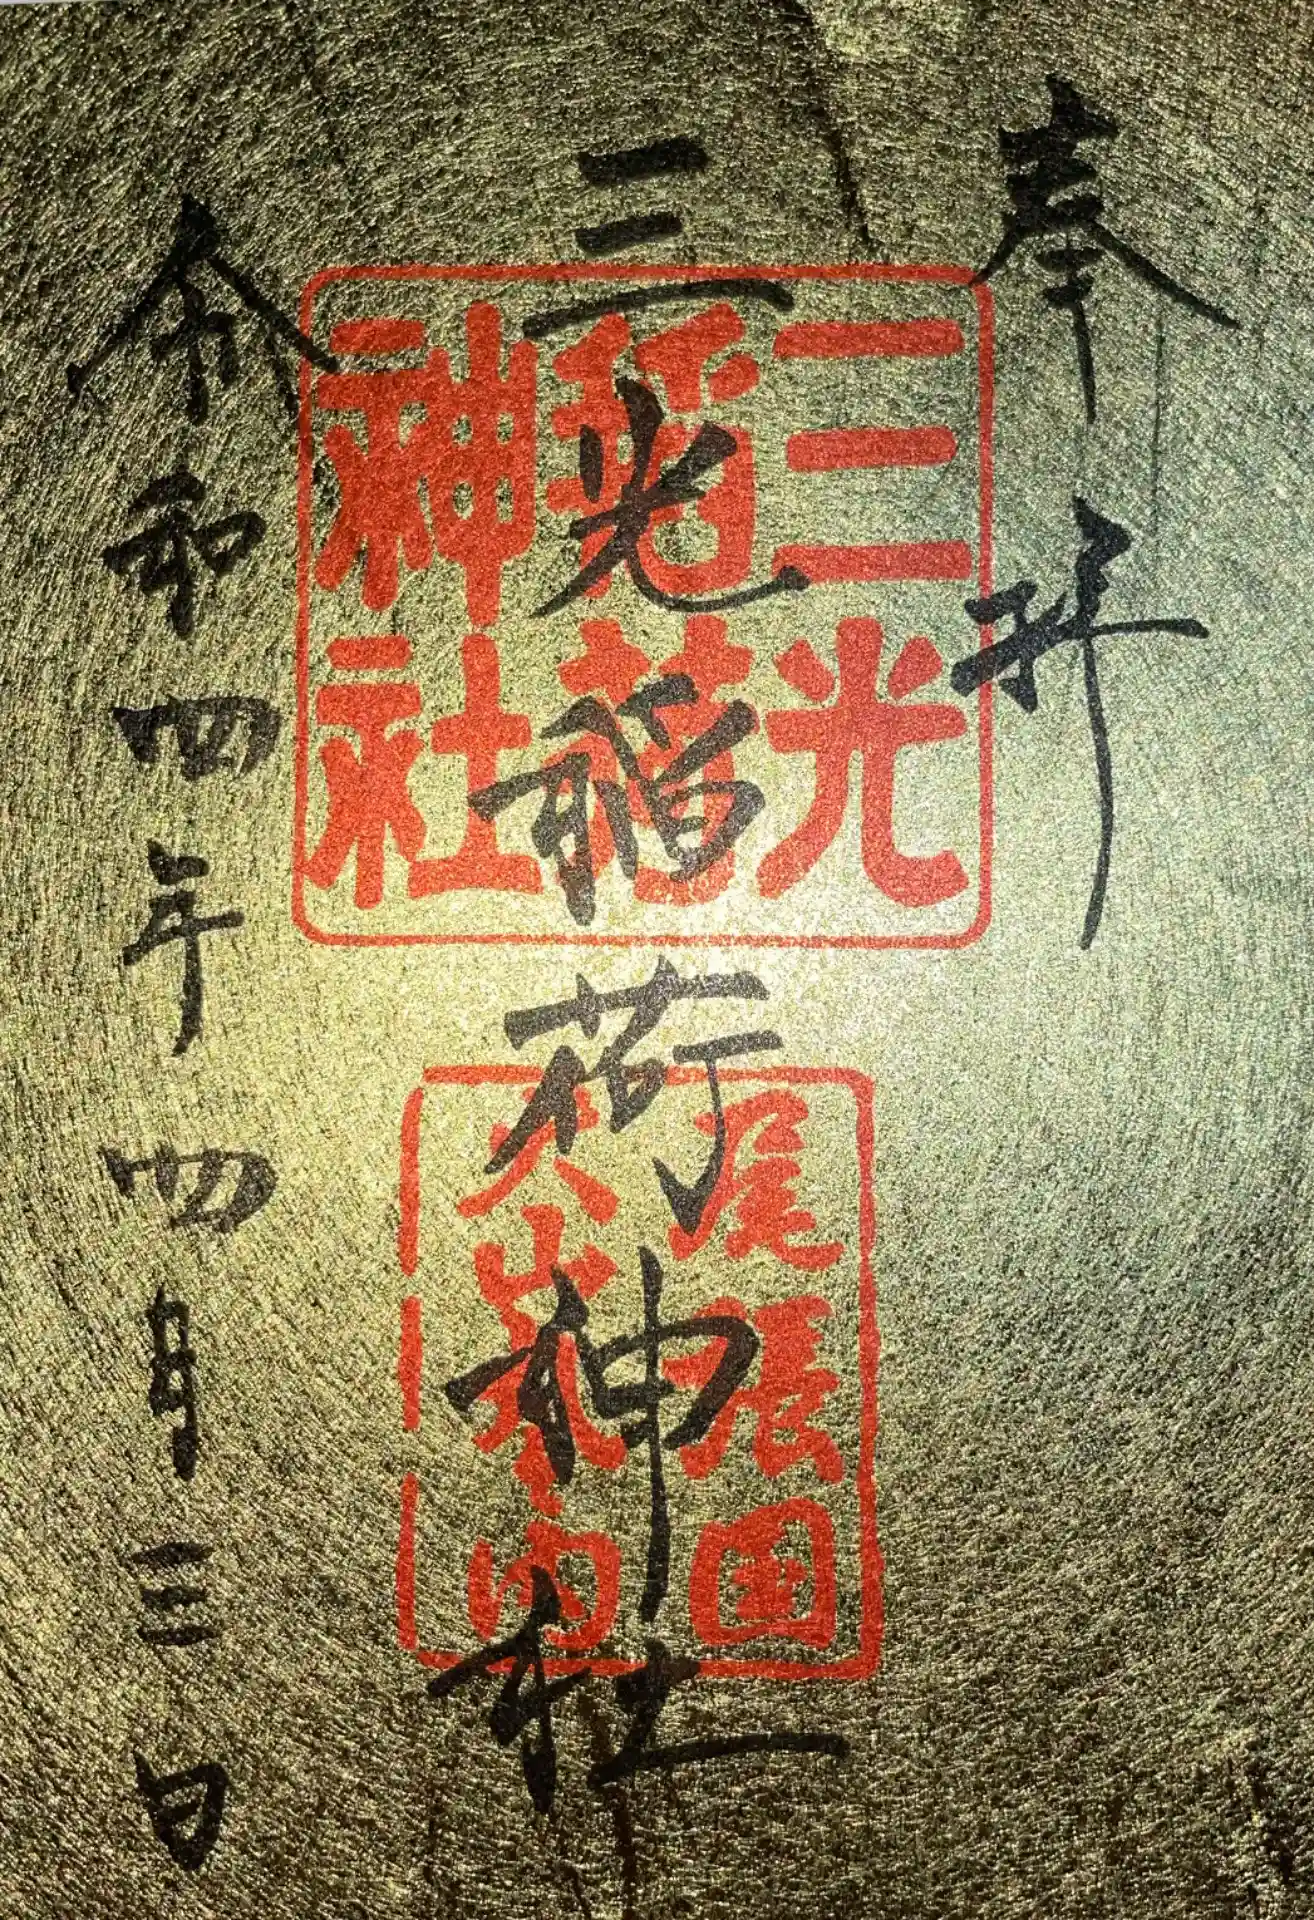 奉拝
三光稲荷神社
令和四年四月三日
三光
稲荷
神社
尾張国
犬山丸之内